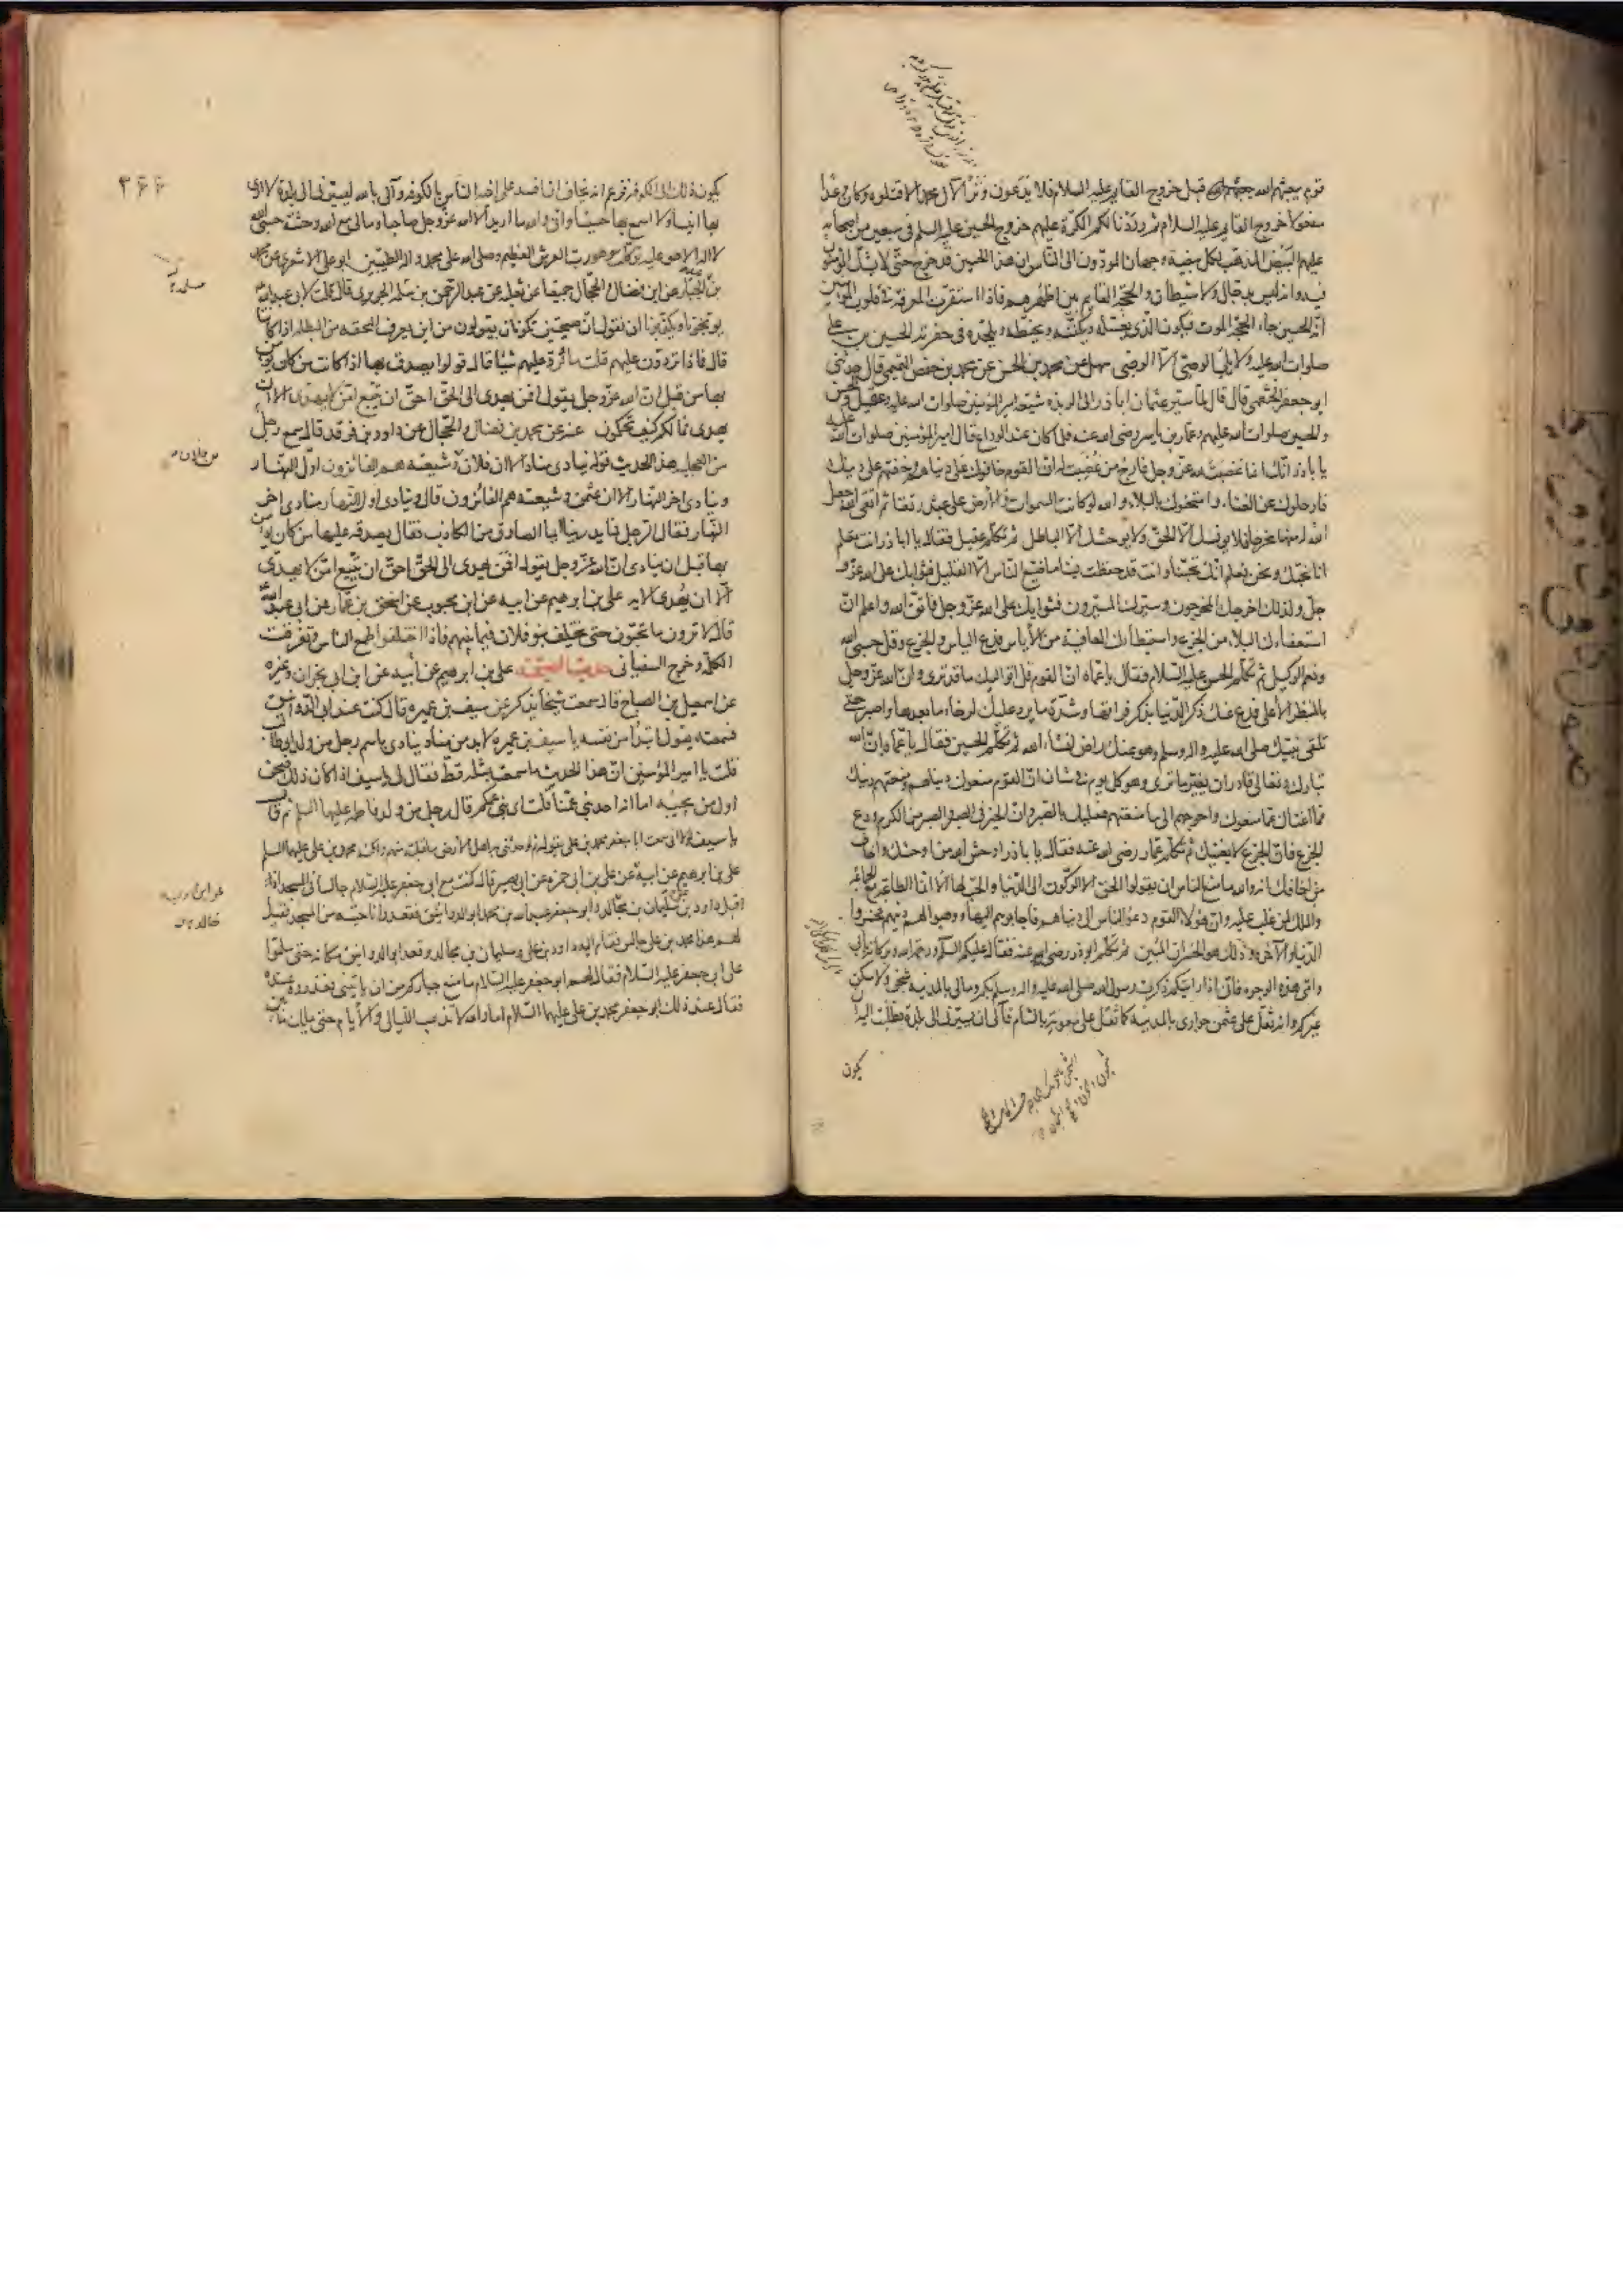 قوم يبعثهم الله قبل خروج القايم عليه السلام فلا يدعون وترا لآل محمد الا قتلوه وكان وعدا
مفعولا خروج القايم عليه السلام ثم رددنا لكم الكرة عليهم خروج الحسين عليه السلم فى سبعين من اصحابه
عليهم البيض المذهب لكل بيضة وجهان المؤدون الى الناس ان هذا الحسين قد خرج حتى لا يشك المؤمنون
فيه وانه ليس بدجال ولا شيطان والحجة القايم بين اظهرهم فاذا استقرت المعرفة فى قلوب المؤمنين
انه الحسين جاء الحجة الموت فيكون الذى يغسله ويكفنه ويحنطه ويلحده فى حفرته الحسين بن على
صلوات الله عليه ولا يلى الوصى الا الوصى سهل عن محمد بن الحسن عن محمد بن حفص التميمى قال حدثنى
ابو جعفر الخثعمى قال قال لما سير عثمان اباذر الى الربذه شيعه امير المؤمنين صلوات الله عليه وعقيل والحسن
والحسين صلوات الله عليهم وعمار بن ياسر رضى الله عنه فلما كان عند الوداع قال امير المؤمنين صلوات الله عليه
يا باذر انك انما غضبت لله عز وجل فارج من غضبت له ان القوم خافوك على دنياهم وخفتهم على دينك
فارحلوك عن الفناء وامتحنوك بالبلاء والله لو كانت السموات والارض على عبد رتقا ثم اتقى الله جعل
الله له منها مخرجا فلا يونسك الا الحق ولا يوحشك الا الباطل ثم تكلم عقيل فقال يا اباذر انت تعلم
انا نحبك ونحن نعلم انك تحبنا وانت قد حفظت فينا ما ضيع الناس الا القليل فثوابك على الله عز و
جل ولذلك اخرجك المخرجون وسيرك المسيرون فثوابك على الله عز وجل فاتق الله واعلم ان
استعفاءك البلاء من الجزع واستبطاءك العافية من الأياس فدع الياس والجزع وقل حسبى الله
ونعم الوكيل ثم تكلم الحسن عليه السلام فقال يا عماه ان القوم قد اتوا اليك ما قد ترى وان الله عز وجل
بالمنظر الأعلى فدع عنك ذكر الدنيا بذكر فراقها وشدة ما يرد عليك لرخاء ما بعدها واصبر حتى
تلقى نبيك صلى الله عليه واله وسلم وهو عنك راض انشاء الله ثم تكلم الحسين فقال يا عماه ان الله
تبارك وتعالى قادر ان يغير ما ترى وهو كل يوم فى شان ان القوم منعوك دنياهم ومنعتهم دينك
فما اغناك عما منعوك واحوجهم الى ما منعتهم فعليك بالصبر وان الخير فى الصبر والصبر من الكرم ودع
الجزع فان الجزع لا يغنيك ثم تكلم عمار رضى الله عنه فقال يا باذر اوحش الله من اوحشك واخاف
من اخافك انه والله ما منع الناس ان يقولوا الحق الا الركون الى الدنيا والحب لها الا انما الطاعة مع الجماعة
والملك لمن غلب عليه وان هؤلاء القوم دعوا الناس الى دنياهم فاجابوهم اليها ووهبوا لهم دينهم فخسروا
الدنيا والآخرة وذلك هو الخسران المبين ثم تكلم ابوذر رضى الله عنه فقال عليكم السلم ورحمة الله وبركاته بابى
وامى هذه الوجوه فانى اذا رايتكم ذكرت رسول الله صلى الله عليه واله وسلم بكم ومالى بالمدينه شجن ولا سكن
غيركم وانه ثقل على عثمن جوارى بالمدينة كما ثقل على معوية بالشام فآلى ان يسيرنى الى بلدة فطلبت اليه ان
يكون
٣٤٤
يكون ذلك الى الكوفه فزعم انه يخاف ان افسد على اخيه الناس بالكوفه وآلى بالله ليسيرنى الى بلدة لا ارى
بها انيسا ولا اسمع بها حسيسا وانى والله ما اريد الا الله عز وجل صاحبا ومالى مع الله وحشة حسبى الله
لا اله الا هو عليه توكلت وهو رب العرش العظيم وصلى الله على محمد واله الطيبين ابو على الاشعرى عن محمد
بن عبد الجبار عن ابن فضال والحجال جميعا عن ثعلبه عن عبد الرحمن بن مسلمه الجريرى قال قلت لابى عبد الله
يوبخونا ويكذبونا ان نقول ان صيحتين تكونان يقولون من اين يعرف المحقه من المبطله اذا كانتا
قال فماذا تردون عليهم قلت ما نرد عليهم شيئا قال قولوا يصدق بها اذا كانت من كان يؤمن
بها من قبل ان الله عز وجل يقول افمن يهدى الى الحق احق ان يتبع امن لا يهدى الا ان
يهدى فما لكم كيف تحكمون عنه عن محمد بن فضال والحجال عن داود بن فرقد قال سمع رجل
من العجليه هذا الحديث قوله ينادى مناد الا ان فلان وشيعته هم الفائزون اول النهار
وينادى اخر النهار الا ان عثمن وشيعته هم الفائزون قال وينادى اول النهار منادى اخر
النهار فقال الرجل فما يدرينا ايما الصادق من الكاذب فقال يصدقه عليها من كان يؤمن
بها قبل ان ينادى ان الله عز وجل يقول افمن يهدى الى الحق احق ان يتبع امن لا يهدى
الا ان يهدى الايه على بن ابرهيم عن ابيه عن ابن محبوب عن اسحق بن عمار عن ابى عبد الله
قال لا ترون ما تحبون حتى يختلف بنو فلان فيما بينهم فاذا اختلفوا طمع الناس وتفرقت
الكلمة وخرج السفيانى حديث الصيحة على بن ابرهيم عن ابيه عن ابن ابى نجران وغيره
عن اسمعيل بن الصباح قال سمعت شيخا يذكر عن سيف بن عميره قال كنت عند ابى الدوانيق
فسمعته يقول ابتداء من نفسه يا سيف بن عميره لا بد من مناد ينادى باسم رجل من ولد ابى طالب
قلت يا امير المؤمنين ان هذا الحديث ما سمعت بمثله قط فقال لى يا سيف اذا كان ذلك فنحن
اول من يجيبه اما انه احد بنى عمنا قلت اى بنى عمكم قال رجل من ولد فاطمه عليها السلم ثم قال
يا سيف لولا انى سمعت ابا جعفر محمد بن على يقوله ثم حدثنى به اهل الأرض ما قبلته منهم ولكنه محمد بن على عليهما السلم
على بن ابرهيم عن ابيه عن على بن ابى حمزه عن ابى بصير قال كنت مع ابى جعفر عليه السلام جالسا فى المسجد اذ
اقبل داود بن على وسليمان بن مجالد وابو جعفر عبد الله بن محمد ابو الدوانيق فقعدوا ناحية من المسجد فقيل
لهم هذا محمد بن على جالس فقام اليه داود بن على وسليمان بن مجالد وقعد ابو الدوانيق مكانه حتى سلموا
على ابى جعفر عليه السلام فقال لهم ابو جعفر عليه السلام ما منع جباركم من ان ياتينى فعذروه عنده
فقال عند ذلك ابو جعفر محمد بن على عليهما السلام اما والله لا تذهب الليالى والأيام حتى يملك ما بين